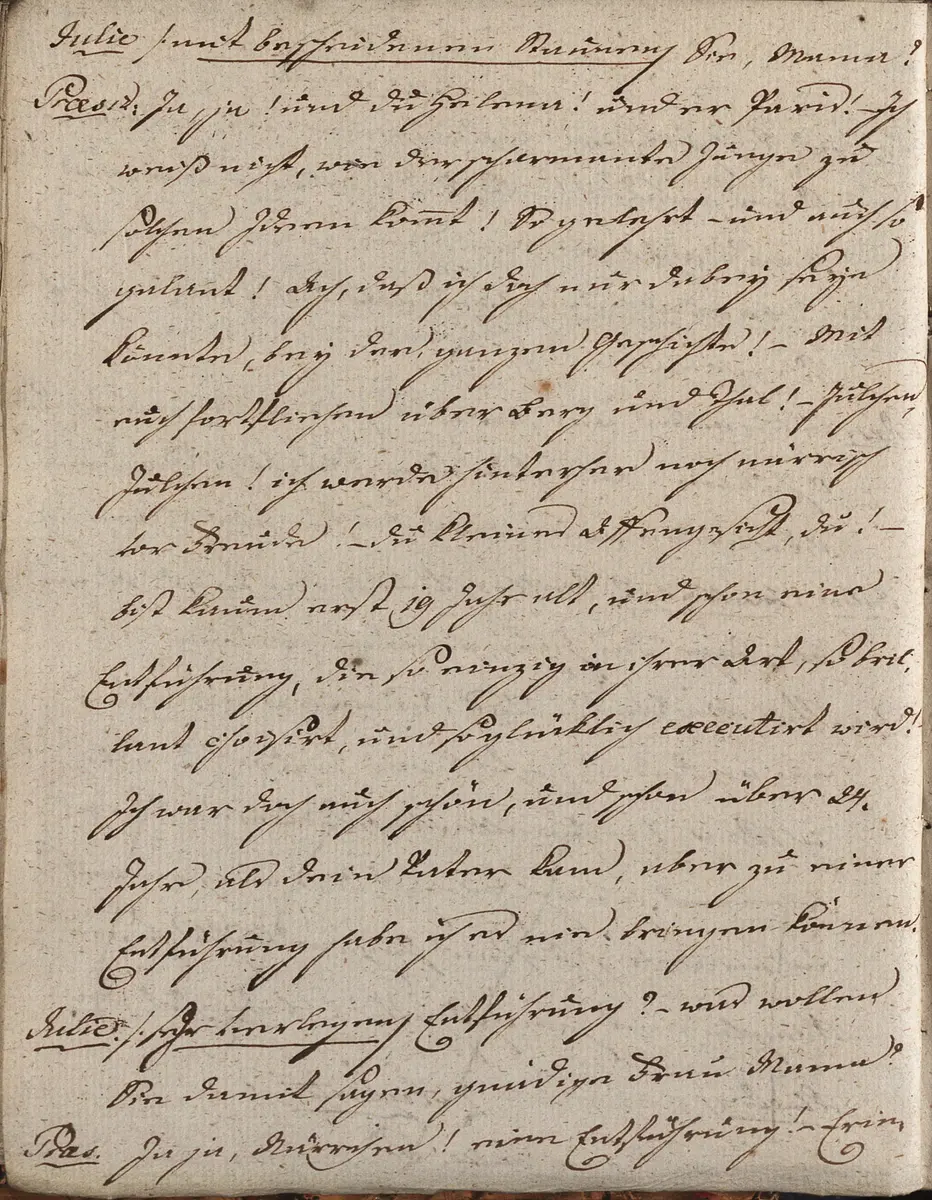 Julie /: mit bescheidenen Staunen :/ Sie, Mama?
Præs: Ja, ja! und du Helena! und er Paris! – Ich
weiß nicht, wie der scharmante Junge zu
solchen Ideen kom̄t! So gelehrt – und auch so
galant! Ach, daß ich doch nur dabey seyn
könnte, bey der ganzen Geschichte! – Mit
euch fortfliehen über Berg und Thal! – Julchen,
Julchen! ich werde hinterher noch närrisch
vor Freude! – du kleines Affengesicht, du! –
bist kaum erst 19 Jahr alt, und schon eine
Entführung, die so einzig in ihrer Art, so bril-
lant choisirt, und so glücklich executirt wird!
Ich war doch auch schön, und schon über 24.
Jahr, als dein Vater kam, aber zu einer
Entführung habe ich es nie bringen können.
Julie: /: sehr verlegen :/ Entführung? – was wollen
Sie damit sagen, gnädige Frau Mama?
Præs. Ja ja, Närrchen! eine Entführung! – Erin-